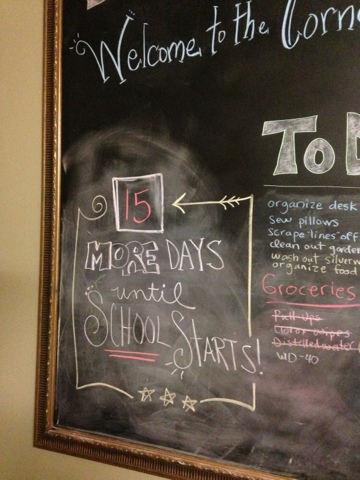 Welcome to the Corne
To D
15
MORE DAYS
until
SCHOOL STARTS!
organize desk
sew pillows
scrape "lines" off
clean out garde
wash out silverw
organize food
Groceries
Pull-Ups
Clorox wipes
Distilled water
WD-40